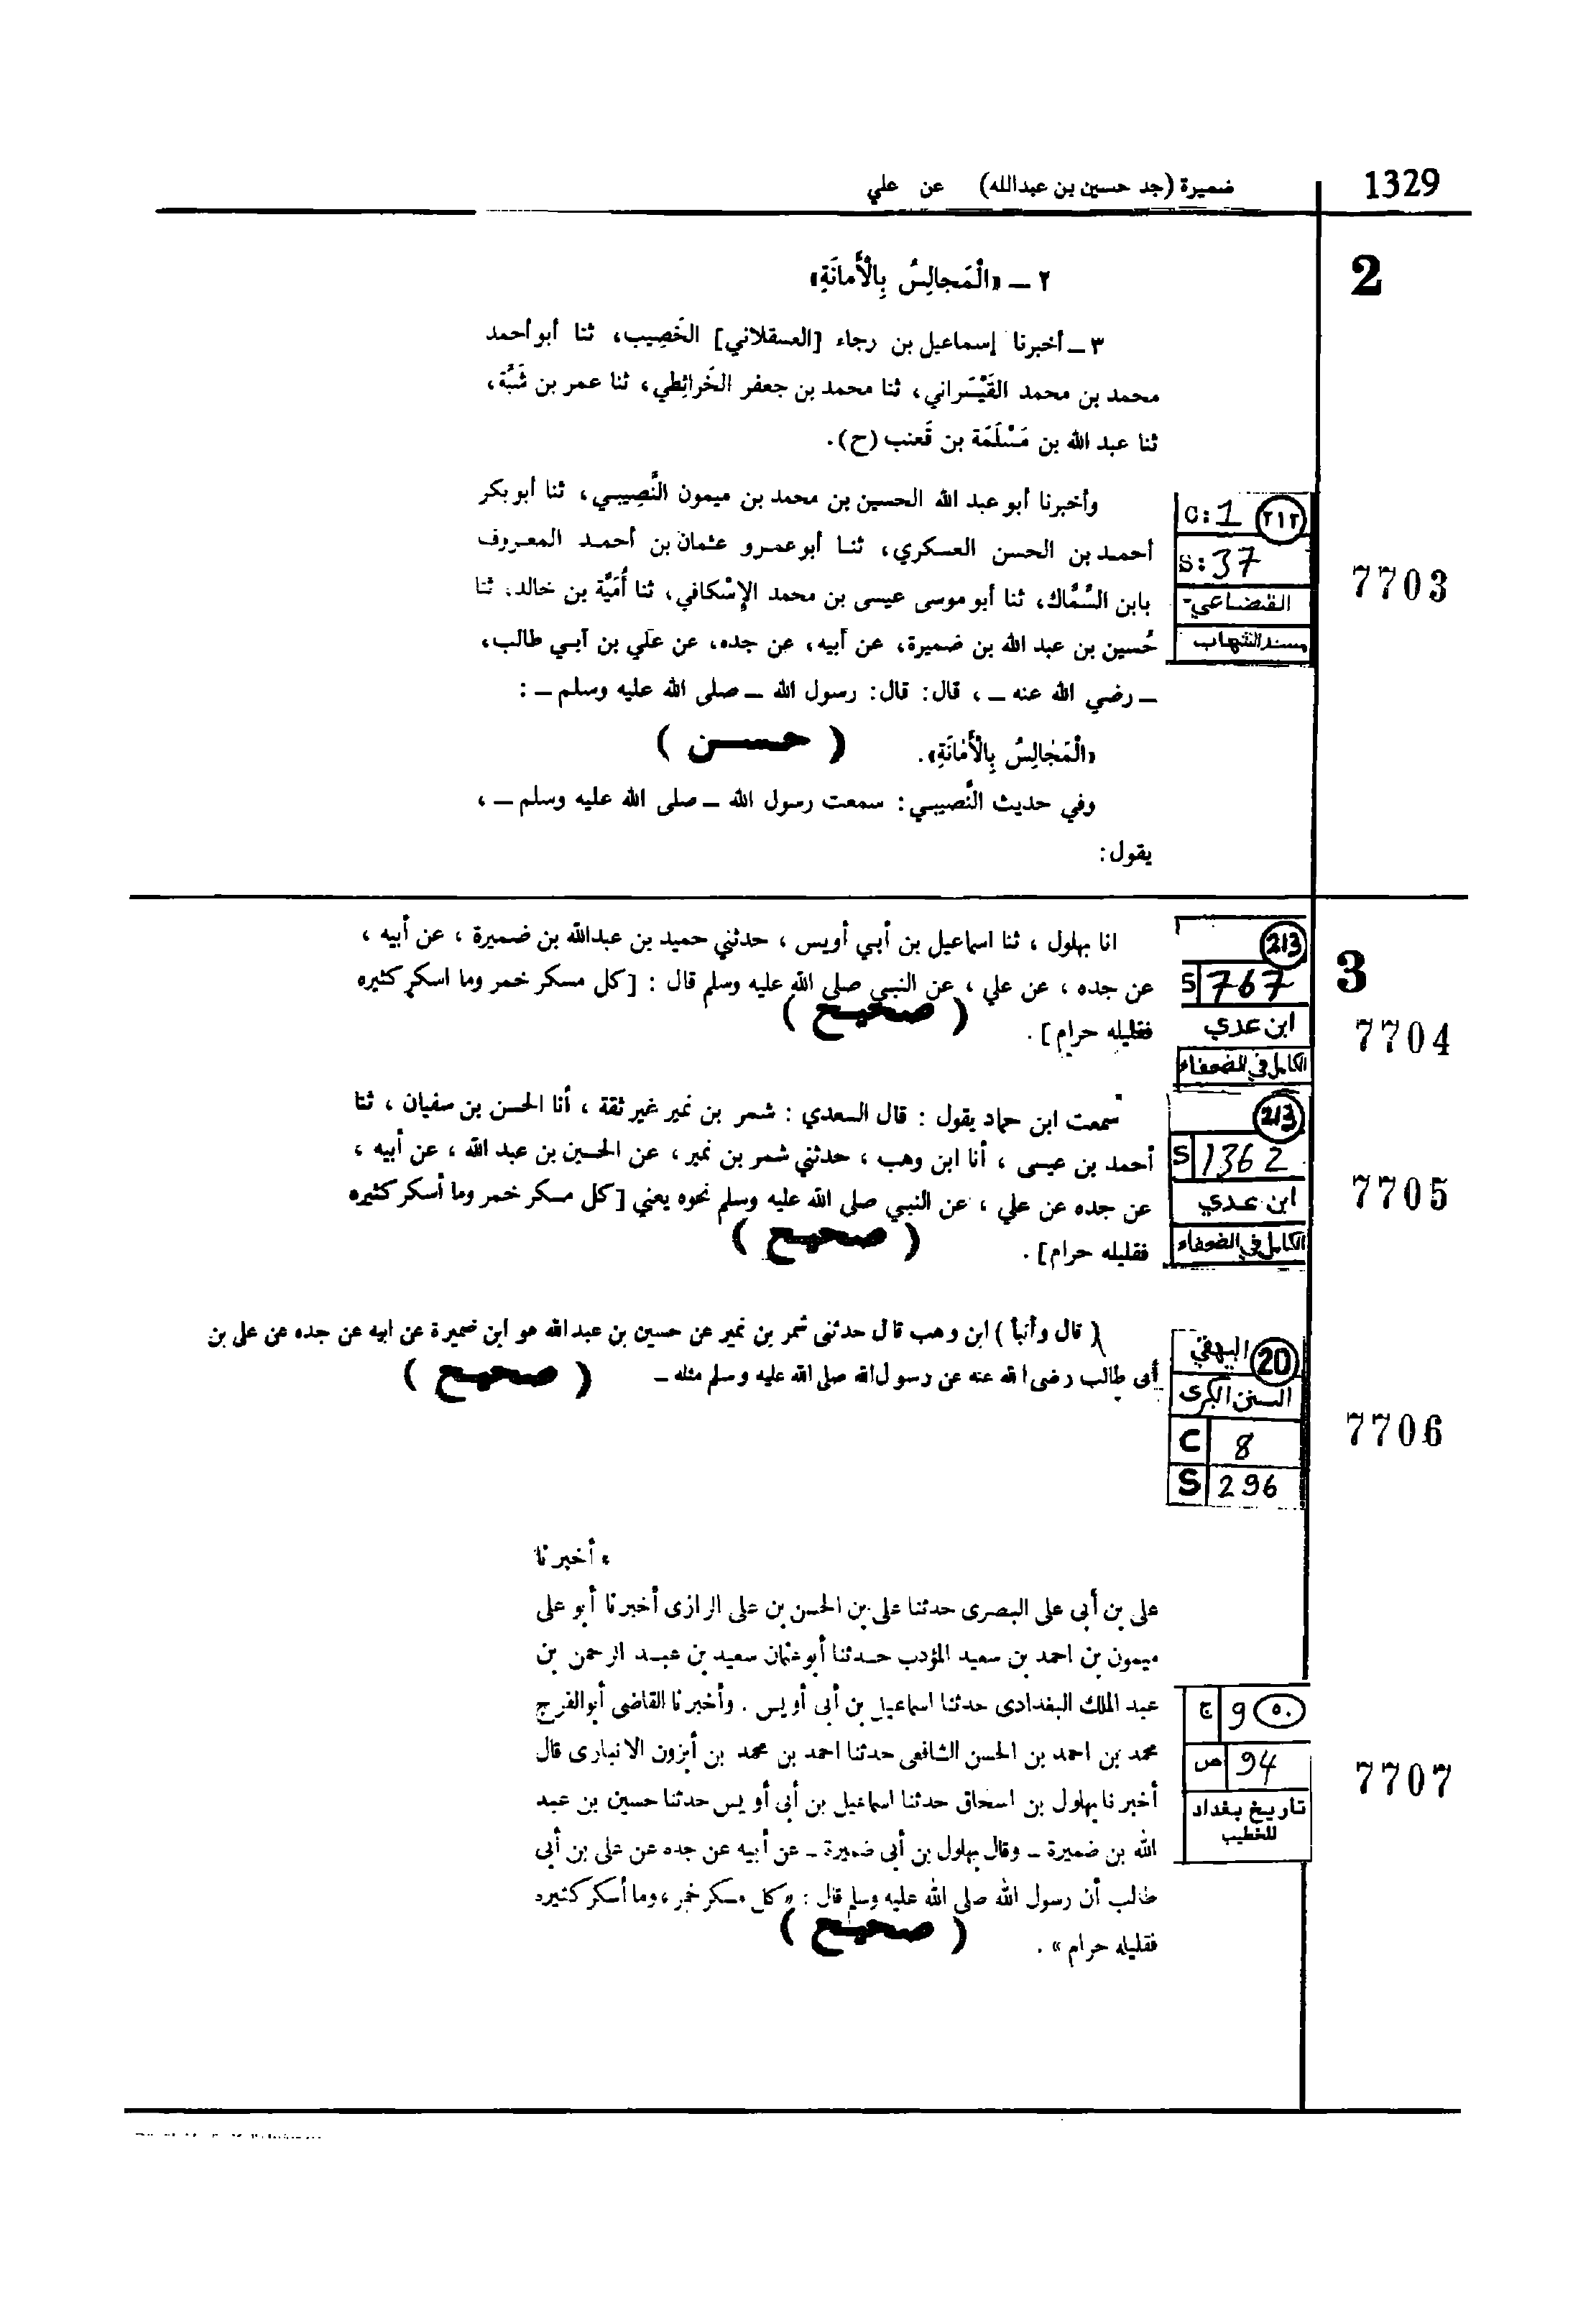 1329
ضميرة (جد حسين بن عبدالله) عن علي
2
٢ ــ «الْمَجالِسُ بِالْأَمانَةِ»
٣ ــ أخبرنا إسماعيل بن رجاء [العسقلاني] الخَصِيب، ثنا أبو أحمد
محمد بن محمد القَيْسَراني، ثنا محمد بن جعفر الخَرائِطي، ثنا عمر بن شَبَّة،
ثنا عبد الله بن مَسْلَمَة بن قَعنب (ح).
وأخبرنا أبو عبد الله الحسين بن محمد بن ميمون النَّصِيبي، ثنا أبو بكر
أحمد بن الحسن العسكري، ثنا أبو عمرو عثمان بن أحمد المعروف
بابن السَّمَّاك، ثنا أبو موسى عيسى بن محمد الإِسْكافي، ثنا أُمَيَّة بن خالد، ثنا
حُسين بن عبد الله بن ضميرة، عن أبيه، عن جده، عن علي بن أبي طالب،
ــ رضي الله عنه ــ، قال: قال: رسول الله ــ صلى الله عليه وسلم ــ:
«الْمَجَالِسُ بِالْأَمَانَةِ». ( حسن )
وفي حديث النَّصيبي: سمعت رسول الله ــ صلى الله عليه وسلم ــ،
يقول:
C: 1 ٢١٢
S: 37
القضاعي-
مسند الشهاب
7703
انا بهلول ، ثنا اسماعيل بن أبي أويس ، حدثني حميد بن عبدالله بن ضميرة ، عن أبيه ،
عن جده ، عن علي ، عن النبي صلى الله عليه وسلم قال : [كل مسكر خمر وما اسكر كثيره
فقليله حرام] . ( صحيح )
213
S 767
ابن عدي
الكامل في الضعفاء
3
7704
سمعت ابن حماد يقول : قال السعدي : شمر بن نمير غير ثقة ، أنا الحسن بن سفيان ، ثنا
أحمد بن عيسى ، أنا ابن وهب ، حدثني شمر بن نمير ، عن الحسين بن عبد الله ، عن أبيه ،
عن جده عن علي ، عن النبي صلى الله عليه وسلم نحوه يعني [كل مسكر خمر وما أسكر كثيره
فقليله حرام] . ( صحيح )
213
S 1362
ابن عدي
الكامل في الضعفاء
7705
( قال وأنبأ ) ابن وهب قال حدثنى شمر بن نمير عن حسين بن عبدالله هو ابن ضميرة عن ابيه عن جده عن على بن
أبى طالب رضى الله عنه عن رسول الله صلى الله عليه وسلم مثله ــ ( صحيح )
البيهقي 20
السنن الكبرى
C 8
S 296
7706
، أخبرنا
على بن أبى على البصرى حدثنا على بن الحسن بن على الرازى أخبرنا أبو على
ميمون بن احمد بن سعيد المؤدب حدثنا أبو عثمان سعيد بن عبد الرحمن بن
عبد الملك البغدادى حدثنا اسماعيل بن أبى أويس . وأخبرنا القاضى أبو الفرج
محمد بن احمد بن الحسن الشافعى حدثنا احمد بن محمد بن أبزون الانبارى قال
أخبرنا بهلول بن اسحاق حدثنا اسماعيل بن أبى أويس حدثنا حسين بن عبد
الله بن ضميرة ــ وقال بهلول بن أبى ضميرة ــ عن أبيه عن جده عن على بن أبى
طالب أن رسول الله صلى الله عليه وسلم قال : «كل مسكر خمر ، وما أسكر كثيره
فقليله حرام» . ( صحيح )
ج 9 ٥٠
ص 94
تاريخ بغداد
للخطيب
7707